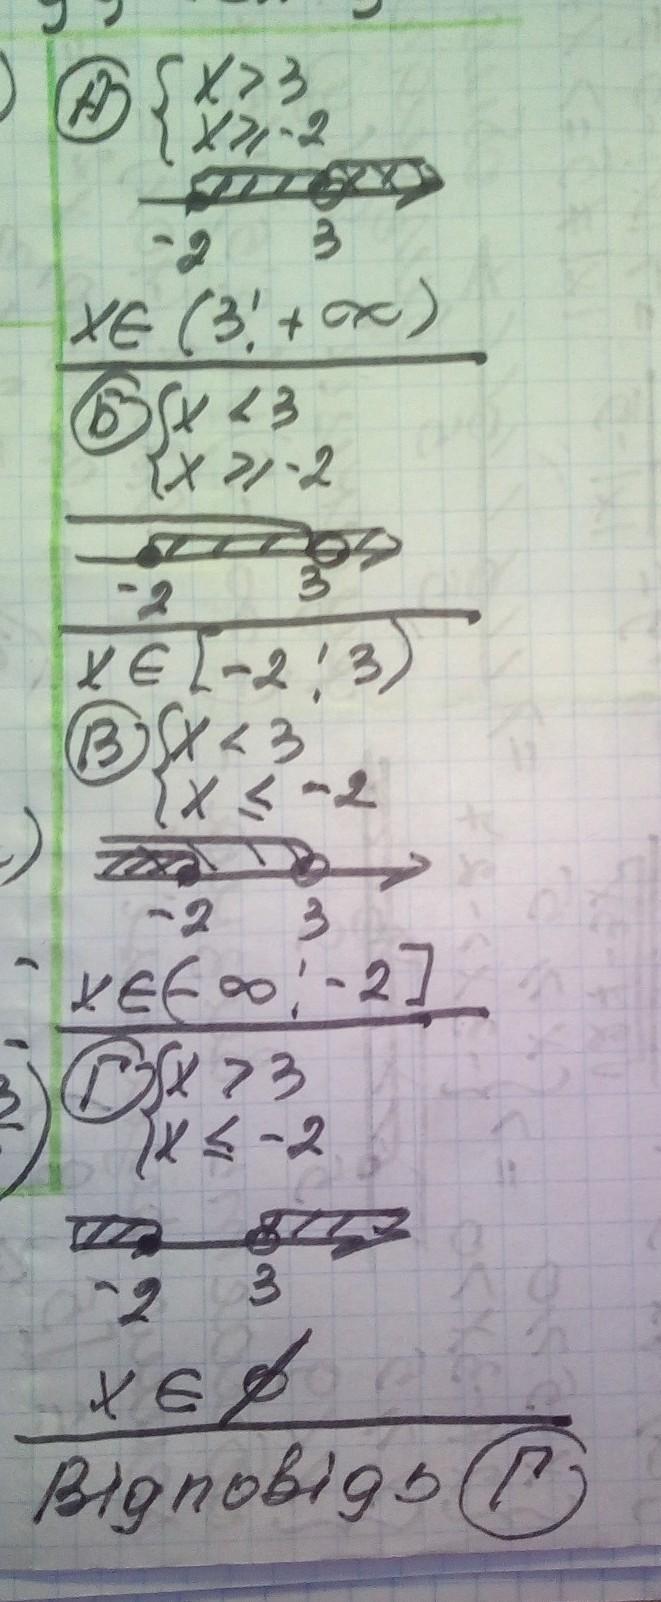 А) { x > 3
{ x ⩾ -2
-2 3
x ∈ (3; +∞)
Б) { x < 3
{ x ⩾ -2
-2 3
x ∈ [-2; 3)
В) { x < 3
{ x ≤ -2
-2 3
x ∈ (-∞; -2]
Г) { x > 3
{ x ≤ -2
-2 3
x ∈ ∅
Відповідь Г